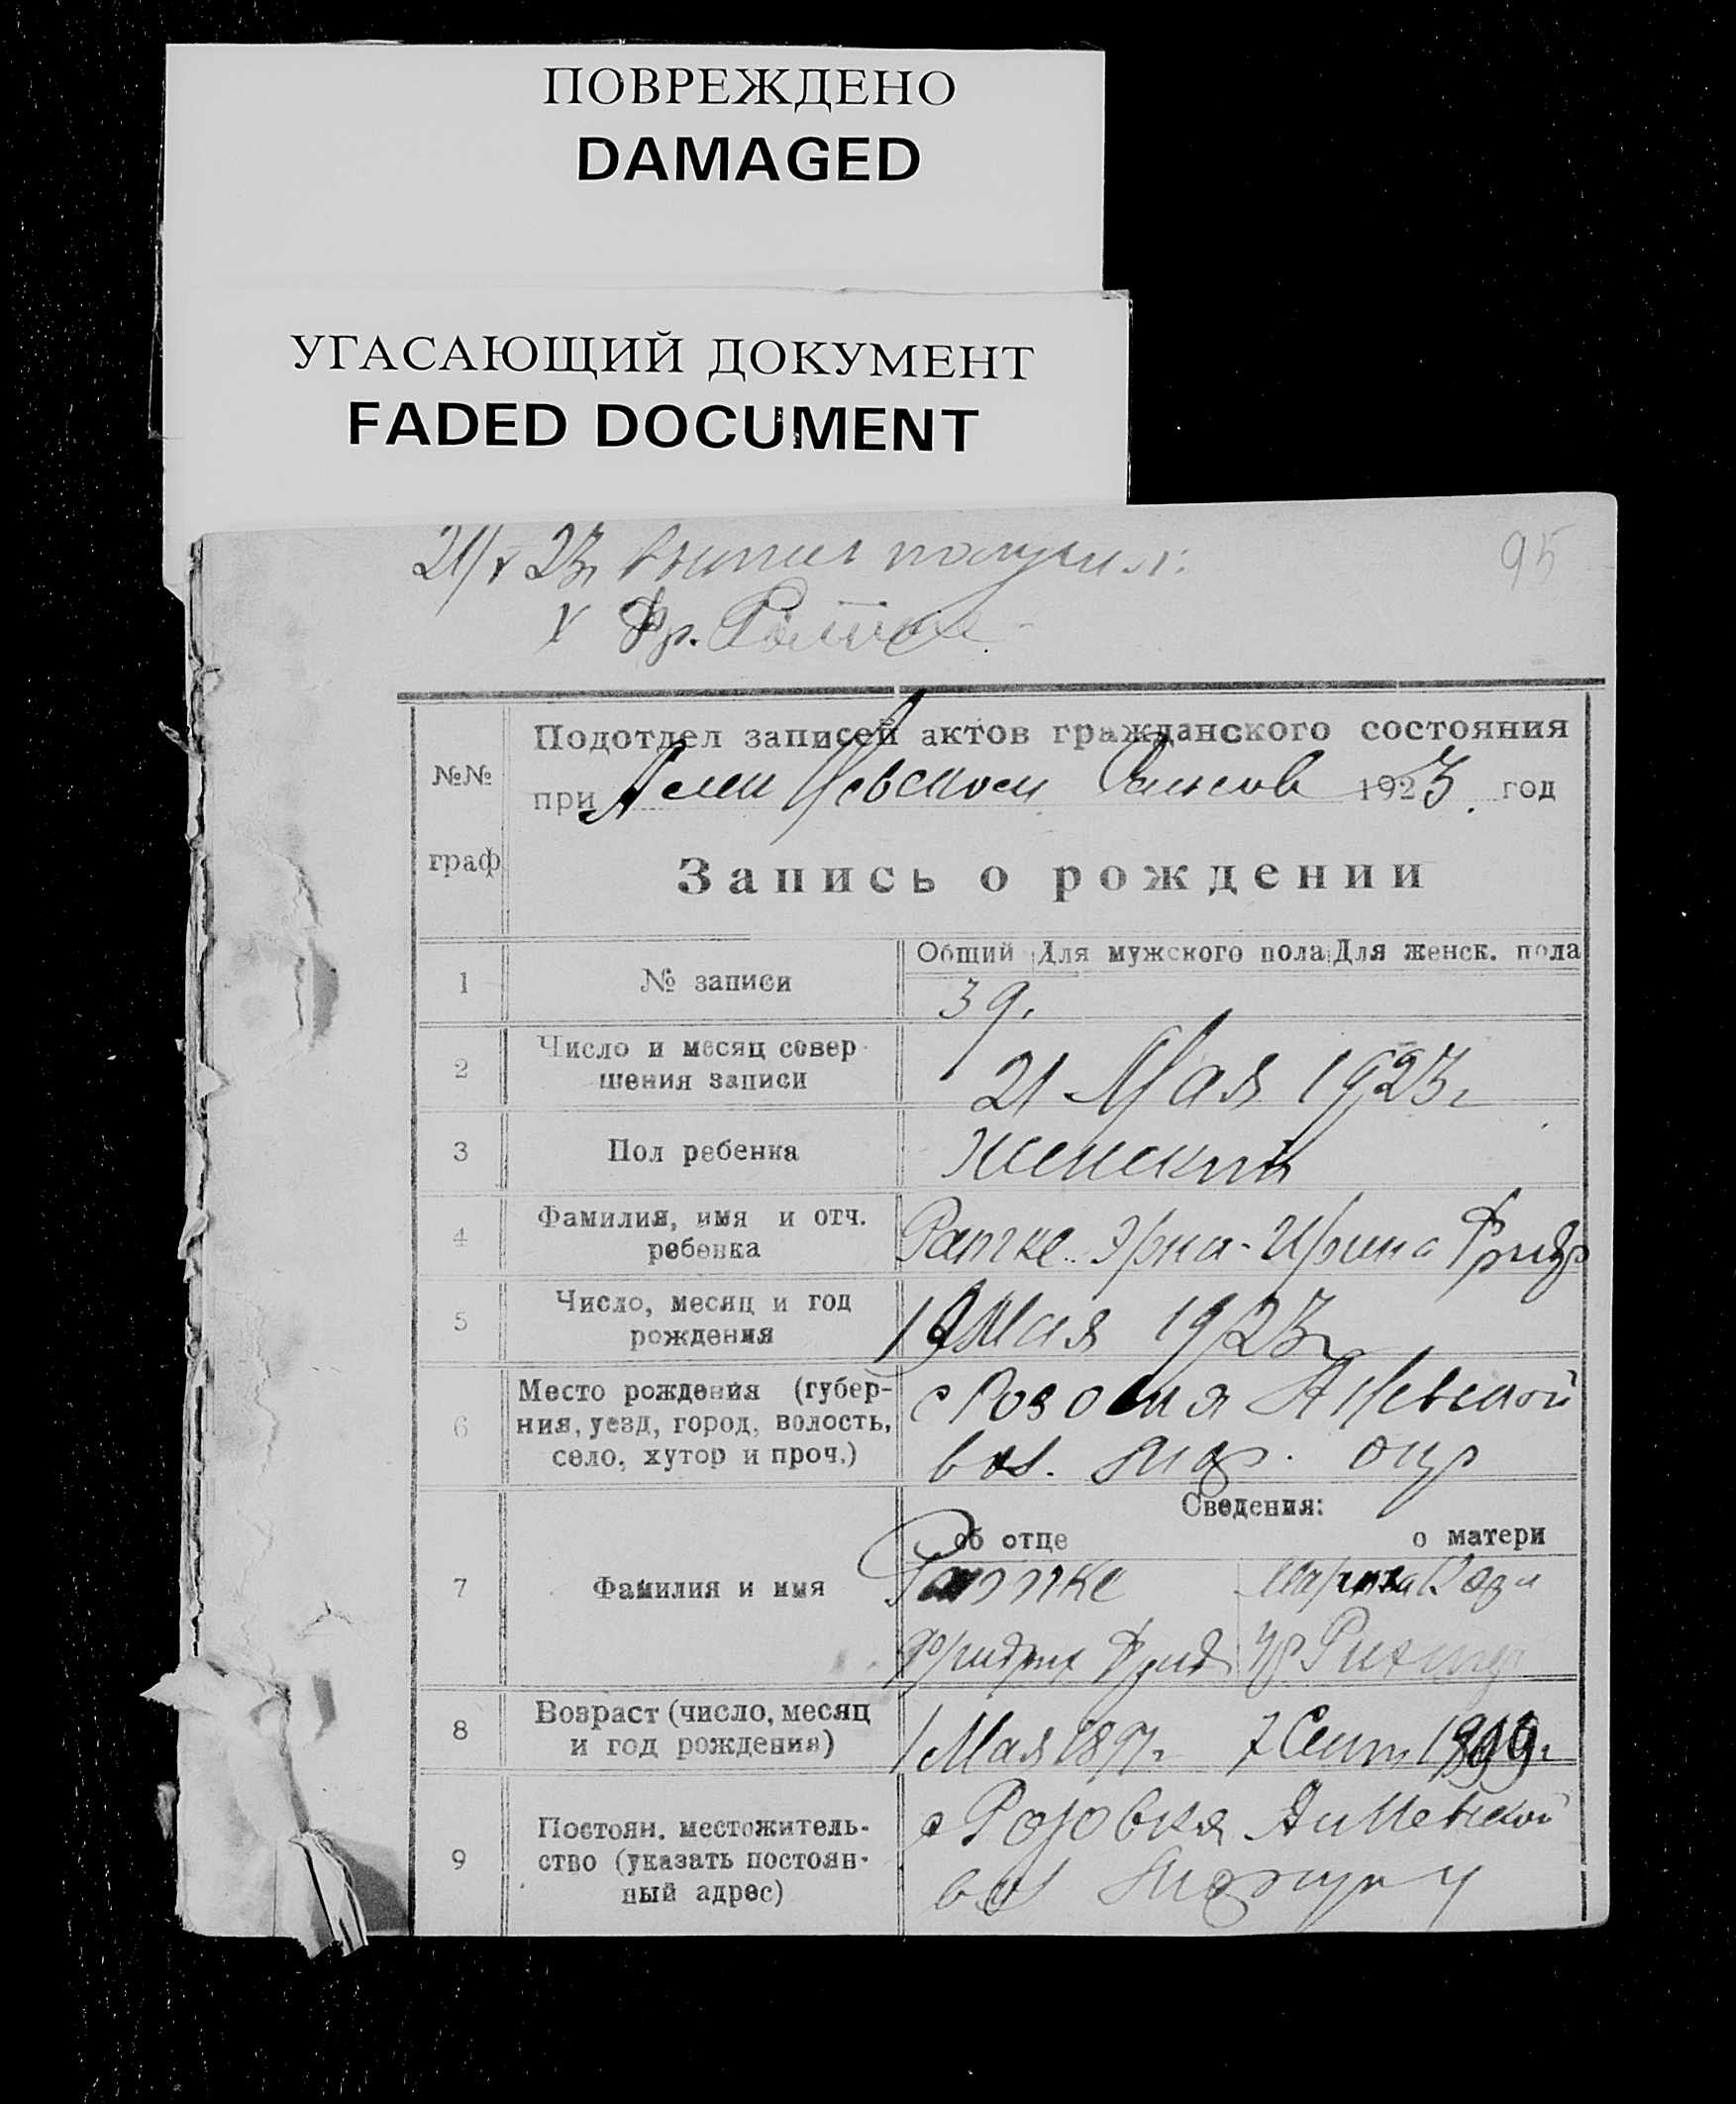 ПОВРЕЖДЕНО
DAMAGED
УГАСАЮЩИЙ ДОКУМЕНТ
FADED DOCUMENT
95
21/V 23г выпись получил:
V Фр.
Подотдел записей актов гражданского состояния
№№
при 1923 год
граф
Запись о рождении
Общий Для мужского пола Для женск. пола
1 № записи 39.
2 Число и месяц совер-
шения записи 21 Мая 1923г
3 Пол ребенка женский
4 Фамилия, имя и отч.
ребенка Ратке Эрна-Ирина Фридр
5 Число, месяц и год
рождения Мая 1923г
6 Место рождения (губер-
ния, уезд, город, волость,
село, хутор и проч.)
с Розовка
вол. окр
Сведения:
об отце о матери
7 Фамилия и имя Ратке Роза
Фридрих Фрид
8 Возраст (число, месяц
и год рождения) 1 Мая 1897г 7 Сент 1899г.
9 Постоян. местожитель-
ство (указать постоян-
ный адрес)
с Розовка
вол